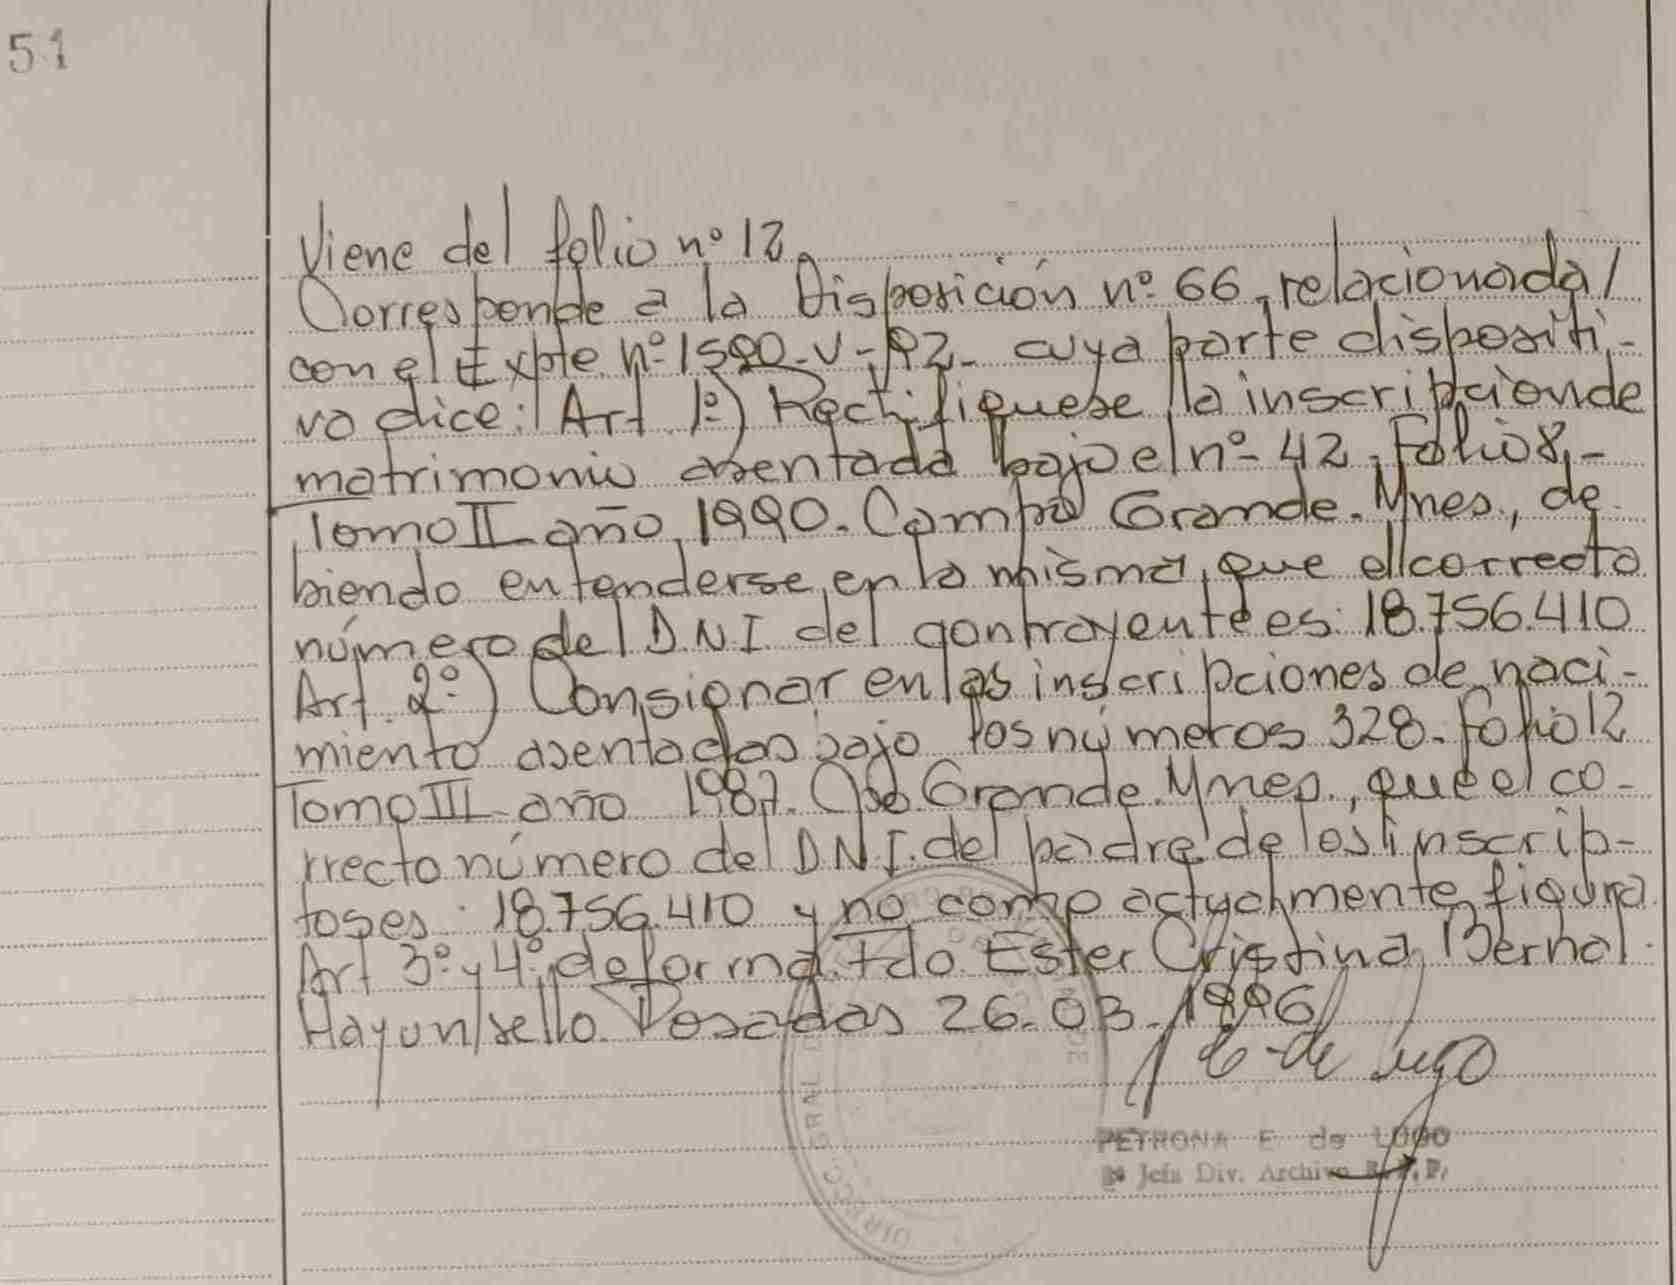 51
Viene del folio nº 12
Corresponde a la Disposición nº 66, relacionada/
con el Expte. nº 1590-V-92- cuya parte dispositi-
va dice: Art. 1º) Rectifíquese la inscripcionde
matrimonio asentada bajo el nº 42. Folio 8,-
Tomo II año 1990. Campo Grande. Mnes., de
biendo entenderse en la misma, que el correcto
número del D.N.I. del contrayente es: 18.756.410
Art. 2º) Consignar en las inscripciones de naci-
miento asentadas bajo los números 328. folio 12
Tomo III año 1987. Grande. Mnes., que el co-
rrecto número del D.N.I. del padre de los inscrip-
tos es: 18.756.410 y no como actualmente figura.
Art 3º y 4º, de forma. Fdo. Ester Cristina Bernal.
Hay un sello. Posadas 26-03-1996
E de Lugo
PETRONA E de LUGO
Jefa Div. Archivo R.P.P.